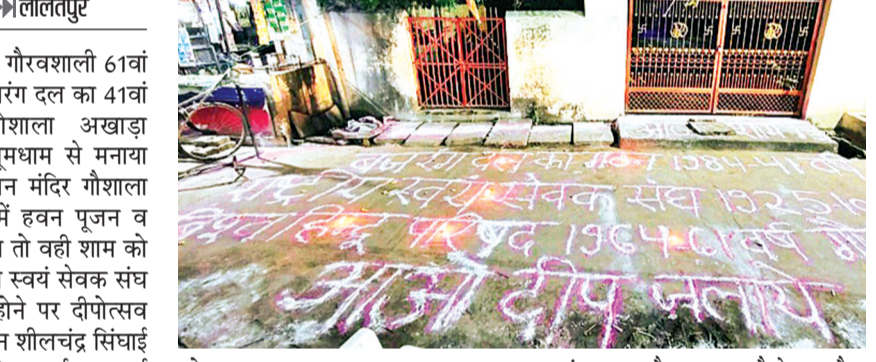 ललितपुर
गौरवशाली 61वां
दल का 41वां
अखाड़ा
से मनाया
मंदिर गौशाला
में हवन पूजन व
तो वही शाम को
स्वयं सेवक संघ
होने पर दीपोत्सव
शीलचंद्र सिंघाई
बजरंग दल का गठन 1984-41
राष्ट्रीय स्वयं सेवक संघ 1925
हिन्दू परिषद 1964-61 वर्ष
आओ दीप जलाये